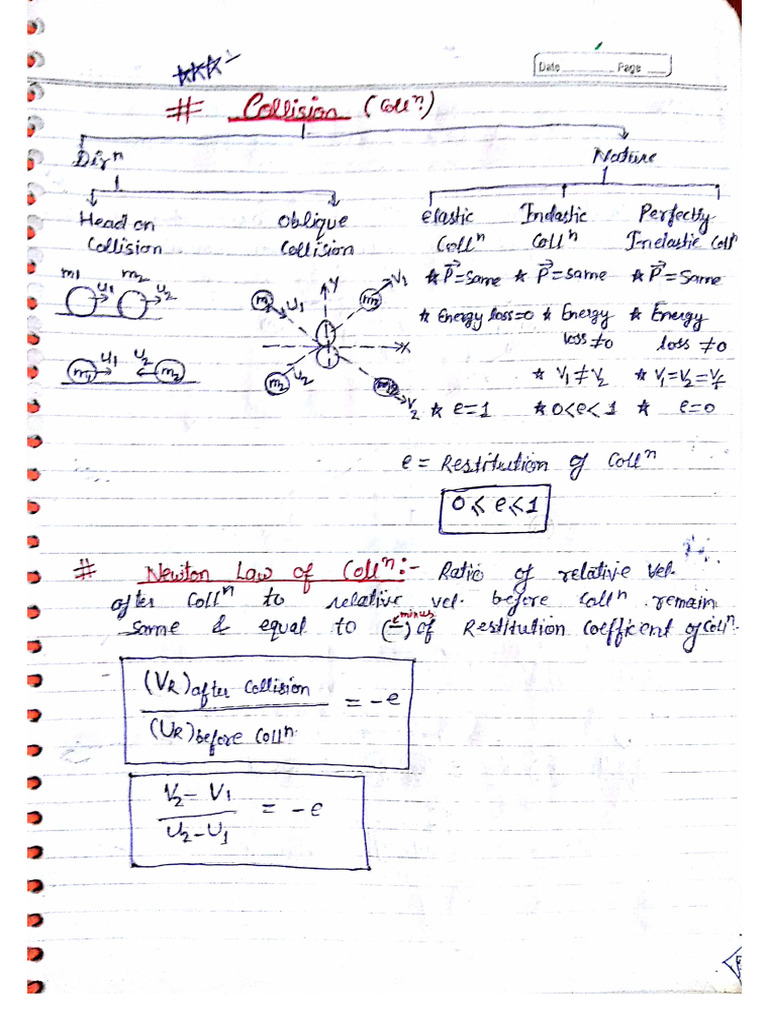 ***
Date ______ Page ____
# Collision (Collⁿ)
Dirⁿ Nature
Head on Collision
Oblique Collision
elastic Collⁿ
Inelastic Collⁿ
Perfectly Inelastic Collⁿ
m1 m2
u1 u2
m1 u1 u2 m2
m1 u1 Y V1
X
m2 u2 V2
* P⃗ = same * P⃗ = same * P⃗ = Same
* Energy loss=0 * Energy loss ≠0 * Energy loss ≠0
* V1 ≠ V2 * V1=V2=Vf
* e=1 * 0<e<1 * e=0
e = Restitution of Collⁿ
0 ⩽ e ⩽ 1
# Newton Law of Collⁿ:- Ratio of relative vel.
after Collⁿ to relative vel. before Collⁿ remain
same & equal to (−) minus of Restitution Coefficent of Collⁿ.
(VR) after Collision / (UR) before Collⁿ = -e
V2 - V1 / U2 - U1 = -e